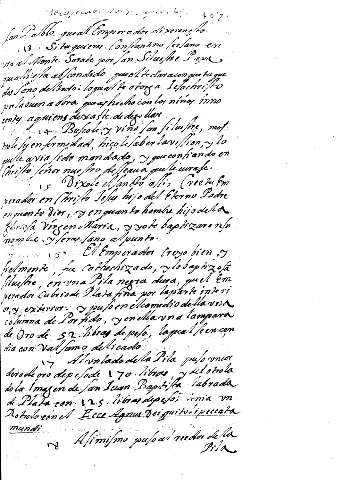 407.
San Pablo, que al Emperador dixeron esto
13 Si tu quieres Constantino ser sano en
via al Monte Sorate por San Siluestre Papa
que alli esta escondido, que el te declarara con que que
das sano de todo: lo qual te otorga Iesu christo
por la buena obra que as hecho con los niños inno
centes, a quienes dexaste de degollar
14 Buscole, y vino San Siluestre, mos
trole su enfermedad, hizole saber la vission, y lo
que le avia sido mandado, y que confiando en
Christo señor nuestro desseaua que le curasse.
15 Dixole el Santo assi, Cree tu Em
perador en Christo Iesus hijo del Eterno Padre
en quanto dios, y en quanto hombre hijo de la
gloriosa Virgen Maria, y yo te baptizare en su
nombre, y seras sano al punto.
16 El Emperador Creyo bien, y
fielmente, fue catechizado, y lo baptizo San
Siluestre, en vna Pila negra dura, que el Em
perador Cubrio de Plata fina por la parte interi
or, y exterior. y puso en el medio de la vna
columna de Porfido, y en ella vna lampara
de Oro de 52. libras de peso, la qual se en cen
dia con Valsamo delicado.
17 Al vn lado de la Pila puso vn cor
dero de oro de peso de 170. libras, y del otro la
do la Imagen de San Juan Baptista labrada
de Plata con 125. libras de peso: tenia vn
Rotulo en el Ecce Agnus Dei qui tolis peccata
mundi.
18 Assimismo puso al rededor de la
Pila